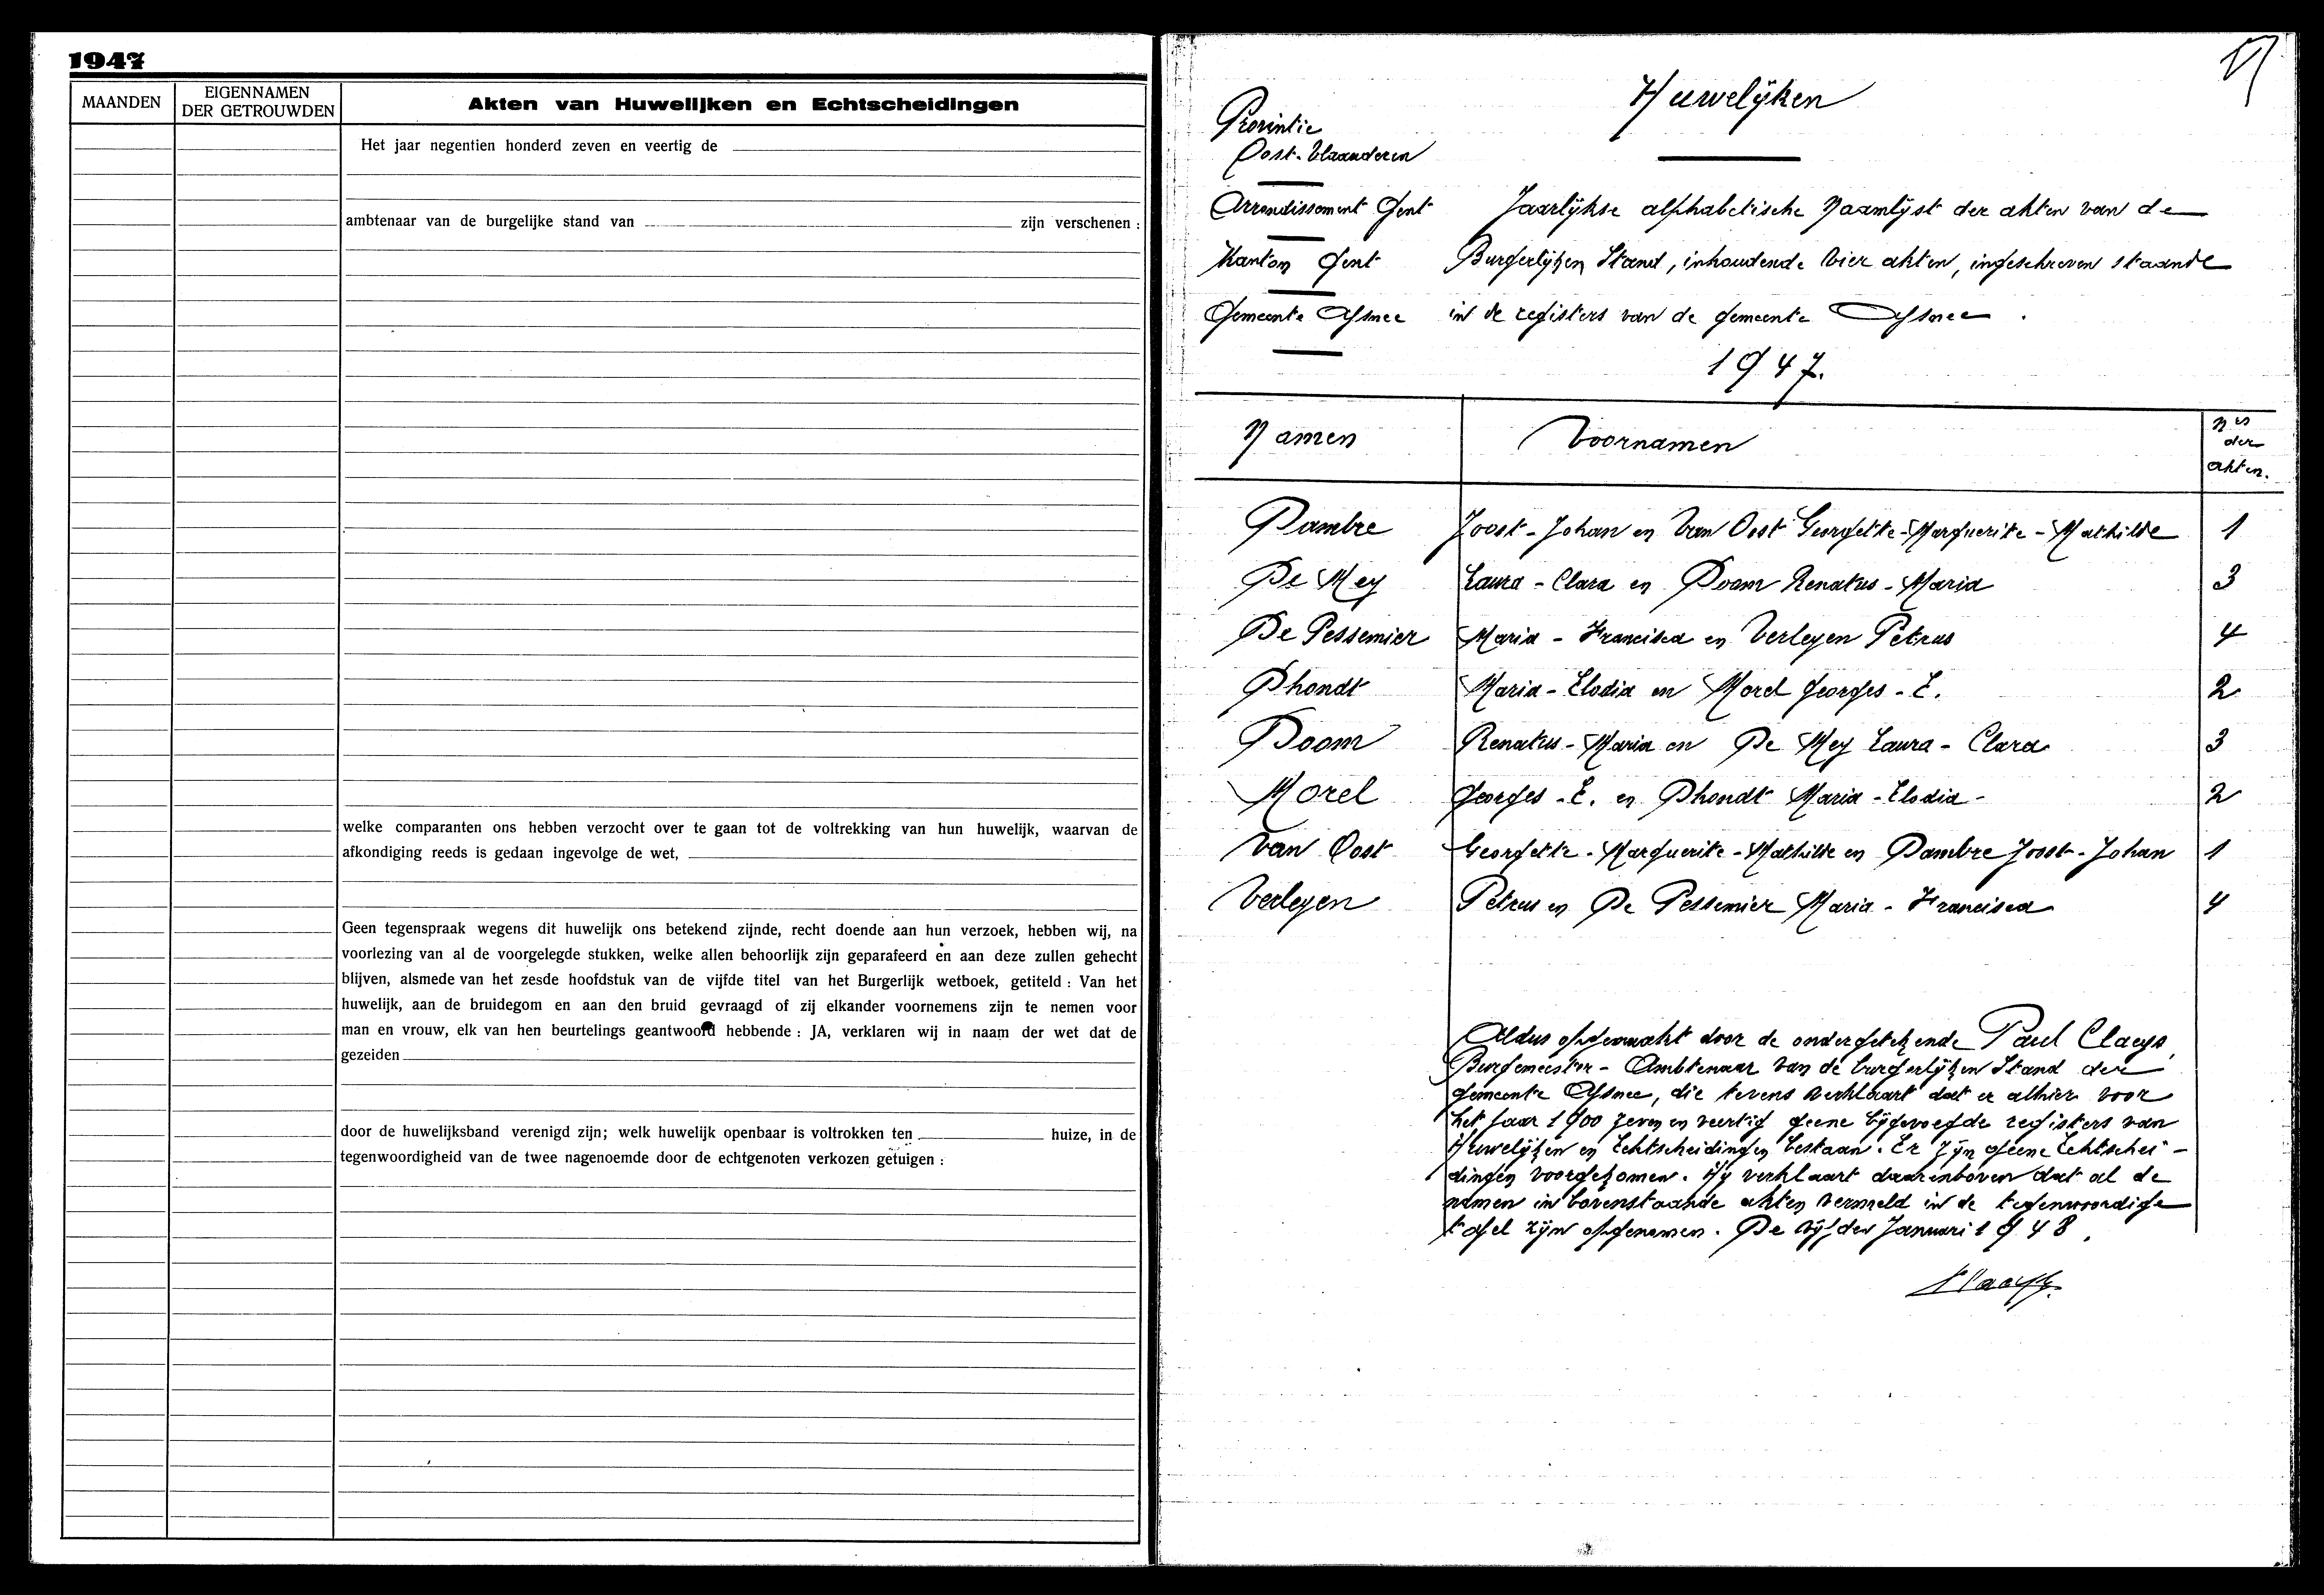 1947
MAANDEN
EIGENNAMEN
DER GETROUWDEN
Akten van Huwelijken en Echtscheidingen
Het jaar negentien honderd zeven en veertig de
ambtenaar van de burgelijke stand van zijn verschenen :
welke comparanten ons hebben verzocht over te gaan tot de voltrekking van hun huwelijk, waarvan de
afkondiging reeds is gedaan ingevolge de wet,
Geen tegenspraak wegens dit huwelijk ons betekend zijnde, recht doende aan hun verzoek, hebben wij, na
voorlezing van al de voorgelegde stukken, welke allen behoorlijk zijn geparafeerd en aan deze zullen gehecht
blijven, alsmede van het zesde hoofdstuk van de vijfde titel van het Burgerlijk wetboek, getiteld : Van het
huwelijk, aan de bruidegom en aan den bruid gevraagd of zij elkander voornemens zijn te nemen voor
man en vrouw, elk van hen beurtelings geantwoord hebbende : JA, verklaren wij in naam der wet dat de
gezeiden
door de huwelijksband verenigd zijn; welk huwelijk openbaar is voltrokken ten huize, in de
tegenwoordigheid van de twee nagenoemde door de echtgenoten verkozen getuigen :
Huwelijken
Provintie
Oost-Vlaanderen
Arrondissement Gent
Jaarlijkse alphabetische Naamlijst der akten van de
Kanton Gent
Burgerlijken Stand, inhoudende vier akten, ingeschreven staande
Gemeente Afsnee
in de registers van de gemeente Afsnee.
1947.
Namen
Voornamen
Nrs
der
akten.
Dambre Joost-Johan en Van Oost Georgette-Marguerite-Mathilde 1
De Mey Laura-Clara en Doom Renatus-Maria 3
De Pessemier Maria-Francisca en Verleyen Petrus 4
Dhondt Maria-Elodia en Morel Georges-E. 2
Doom Renatus-Maria en De Mey Laura-Clara 3
Morel Georges-E. en Dhondt Maria-Elodia- 2
Van Oost Georgette-Marguerite-Mathilde en Dambre Joost-Johan 1
Verleyen Petrus en De Pessemier Maria-Francisca 4
Aldus opgemaakt door de ondergetekende Paul Claeys,
Burgemeester-Ambtenaar van de burgerlijken Stand der
gemeente Afsnee, die tevens verklaart dat er alhier voor
het jaar 1900 zeven en veertig geene bijgevoegde registers van
Huwelijken en Echtscheidingen bestaan. Er zijn geene Echtschei-
dingen voorgekomen. Hij verklaart daarenboven dat al de
namen in bovenstaande akten vermeld in de tegenwoordige
tafel zijn opgenomen. De vijfden Januari 1948.
Claeys